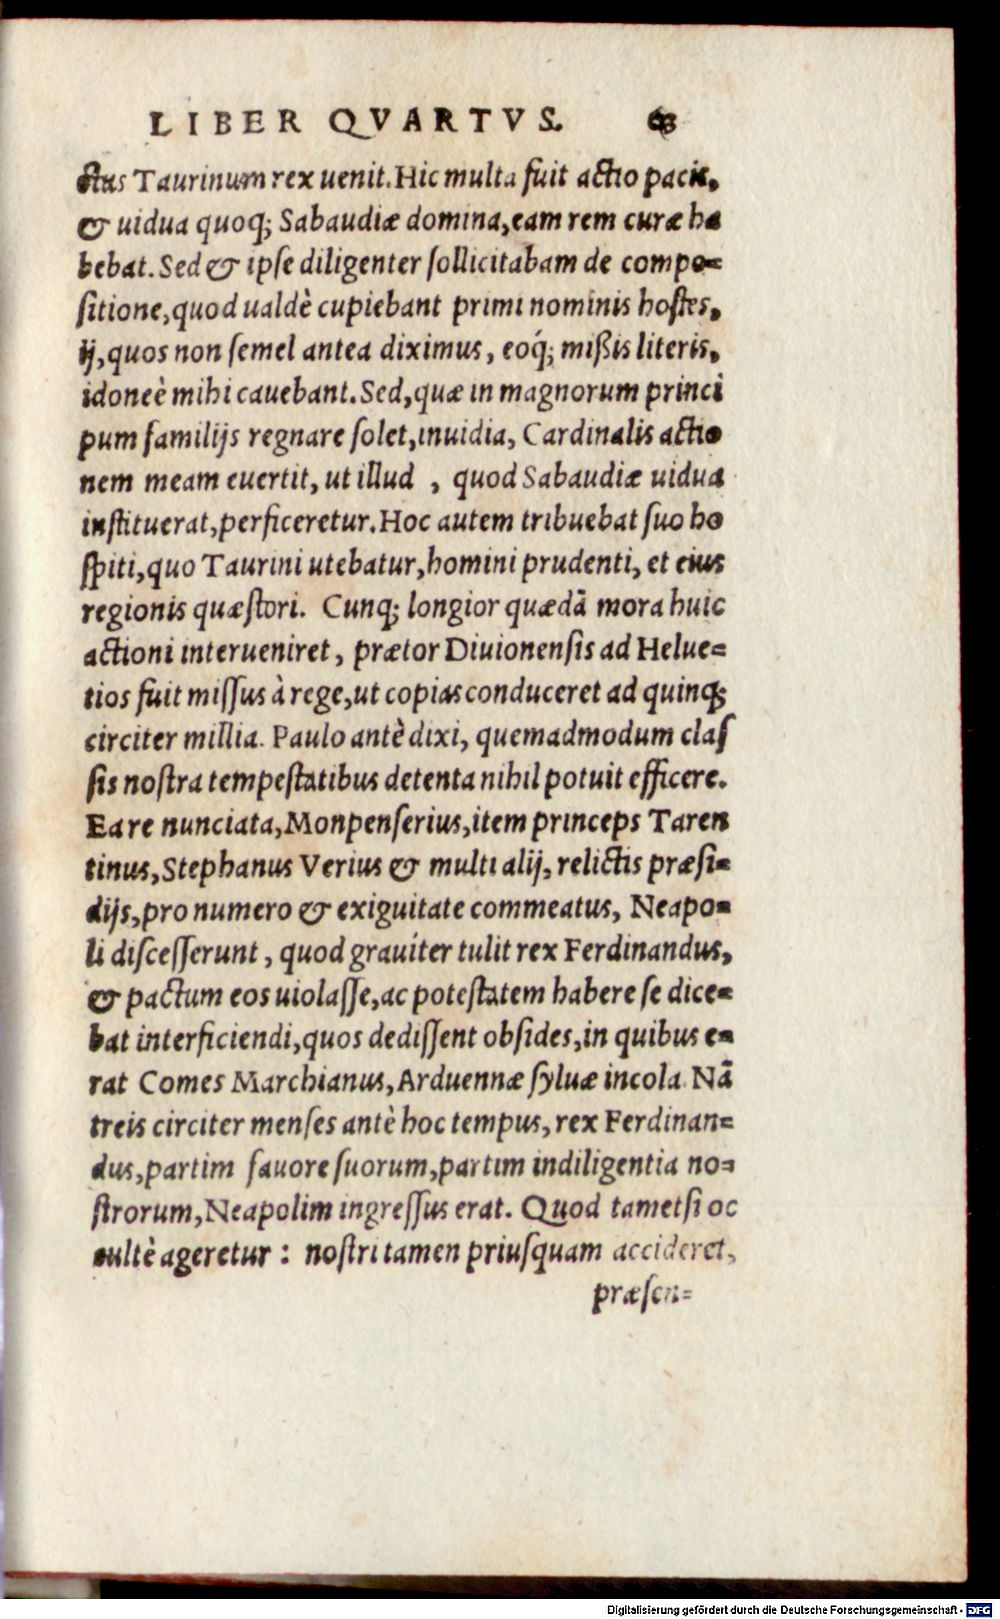 LIBER QVARTVS. 63
ctus Taurinum rex uenit. Hic multa fuit actio pacis,
& uidua quoq; Sabaudiæ domina, eam rem curæ ha
bebat. Sed & ipſe diligenter ſollicitabam de compo=
ſitione, quod ualdè cupiebant primi nominis hoſtes,
ij, quos non ſemel antea diximus, eoq́; mißis literis,
idoneè mihi cauebant. Sed, quæ in magnorum princi
pum familijs regnare ſolet, inuidia, Cardinalis actio
nem meam euertit, ut illud , quod Sabaudiæ uidua
inſtituerat, perficeretur. Hoc autem tribuebat ſuo ho
ſpiti, quo Taurini utebatur, homini prudenti, et eius
regionis quæſtori. Cunq; longior quædā mora huic
actioni interueniret, prætor Diuionenſis ad Helue=
tios fuit miſſus à rege, ut copias conduceret ad quinq;
circiter millia. Paulo antè dixi, quemadmodum claſ
ſis noſtra tempeſtatibus detenta nihil potuit efficere.
Ea re nunciata, Monpenſerius, item princeps Taren
tinus, Stephanus Verius & multi alij, relictis præſi=
dijs, pro numero & exiguitate commeatus, Neapo=
li diſceſſerunt, quod grauiter tulit rex Ferdinandus,
& pactum eos uiolaſſe, ac poteſtatem habere ſe dice=
bat interficiendi, quos dediſſent obſides, in quibus e=
rat Comes Marchianus, Arduennæ ſyluæ incola. Nā
treis circiter menſes antè hoc tempus, rex Ferdinan=
dus, partim fauore ſuorum, partim indiligentia no=
ſtrorum, Neapolim ingreſſus erat. Quod tametſi oc
cultè ageretur : noſtri tamen priuſquam accideret,
præſen=
Digitalisierung gefördert durch die Deutsche Forschungsgemeinschaft - DFG